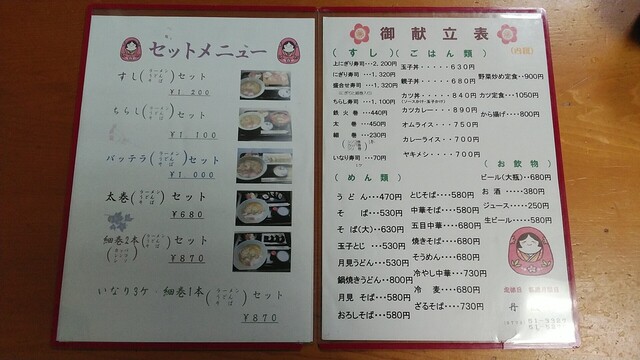 セットメニュー
すし(ラーメン うどん そば)セット
￥1 200
ちらし(ラーメン うどん そば)セット
￥1 100
バッテラ(ラーメン うどん そば)セット
￥1 000
太巻(ラーメン うどん そば)セット
￥680
細巻2本(ラーメン うどん そば)セット
￥870
いなり3ケ・細巻1本(ラーメン うどん そば)セット
￥870
御献立表
(すし)
上にぎり寿司･･･2,200円
にぎり寿司･･･1,320円
盛合せ寿司･･･1,320円
ちらし寿司･･･1,100円
鉄火巻･････440円
太巻･････450円
細巻･････230円
いなり寿司････70円
(ごはん類)
(内税)
玉子丼･････630円
親子丼･････680円
カツ丼･････840円
(ソースカツ・玉子カツ)
カツカレー･･･890円
オムライス･･･750円
カレーライス･･700円
ヤキメシ････700円
野菜炒め定食･･900円
カツ定食･･･1050円
から揚げ･･･800円
(お飲物)
ビール(大瓶)･･680円
お酒･････380円
ジュース･････250円
生ビール･････580円
(めん類)
うどん･･･470円
そば････530円
そば(大)･･･630円
玉子とじ････530円
月見うどん･･･530円
鍋焼きうどん･･800円
月見そば･･･580円
おろしそば･･･580円
とじそば････580円
中華そば････580円
五目中華････680円
焼きそば････680円
そうめん････680円
冷やし中華･･･730円
冷麦････680円
ざるそば････730円
丹